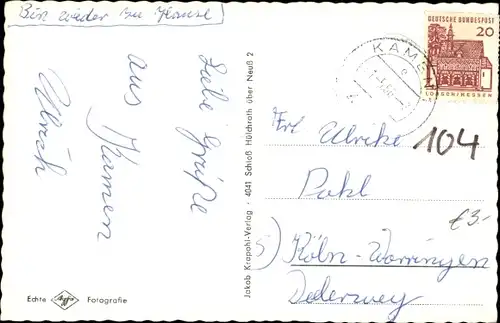 Bin wieder zu Hause!
Liebe Grüße
aus Kamen
Ulrich
Echte Agfa Fotografie
Jakob Krapohl-Verlag · 4041 Schloß Hülchrath über Neuß 2
DEUTSCHE BUNDESPOST
20
LORSCH/HESSEN
KAME
Frl. Ulrike
104
Pohl
€3-
5) Köln-Worringen